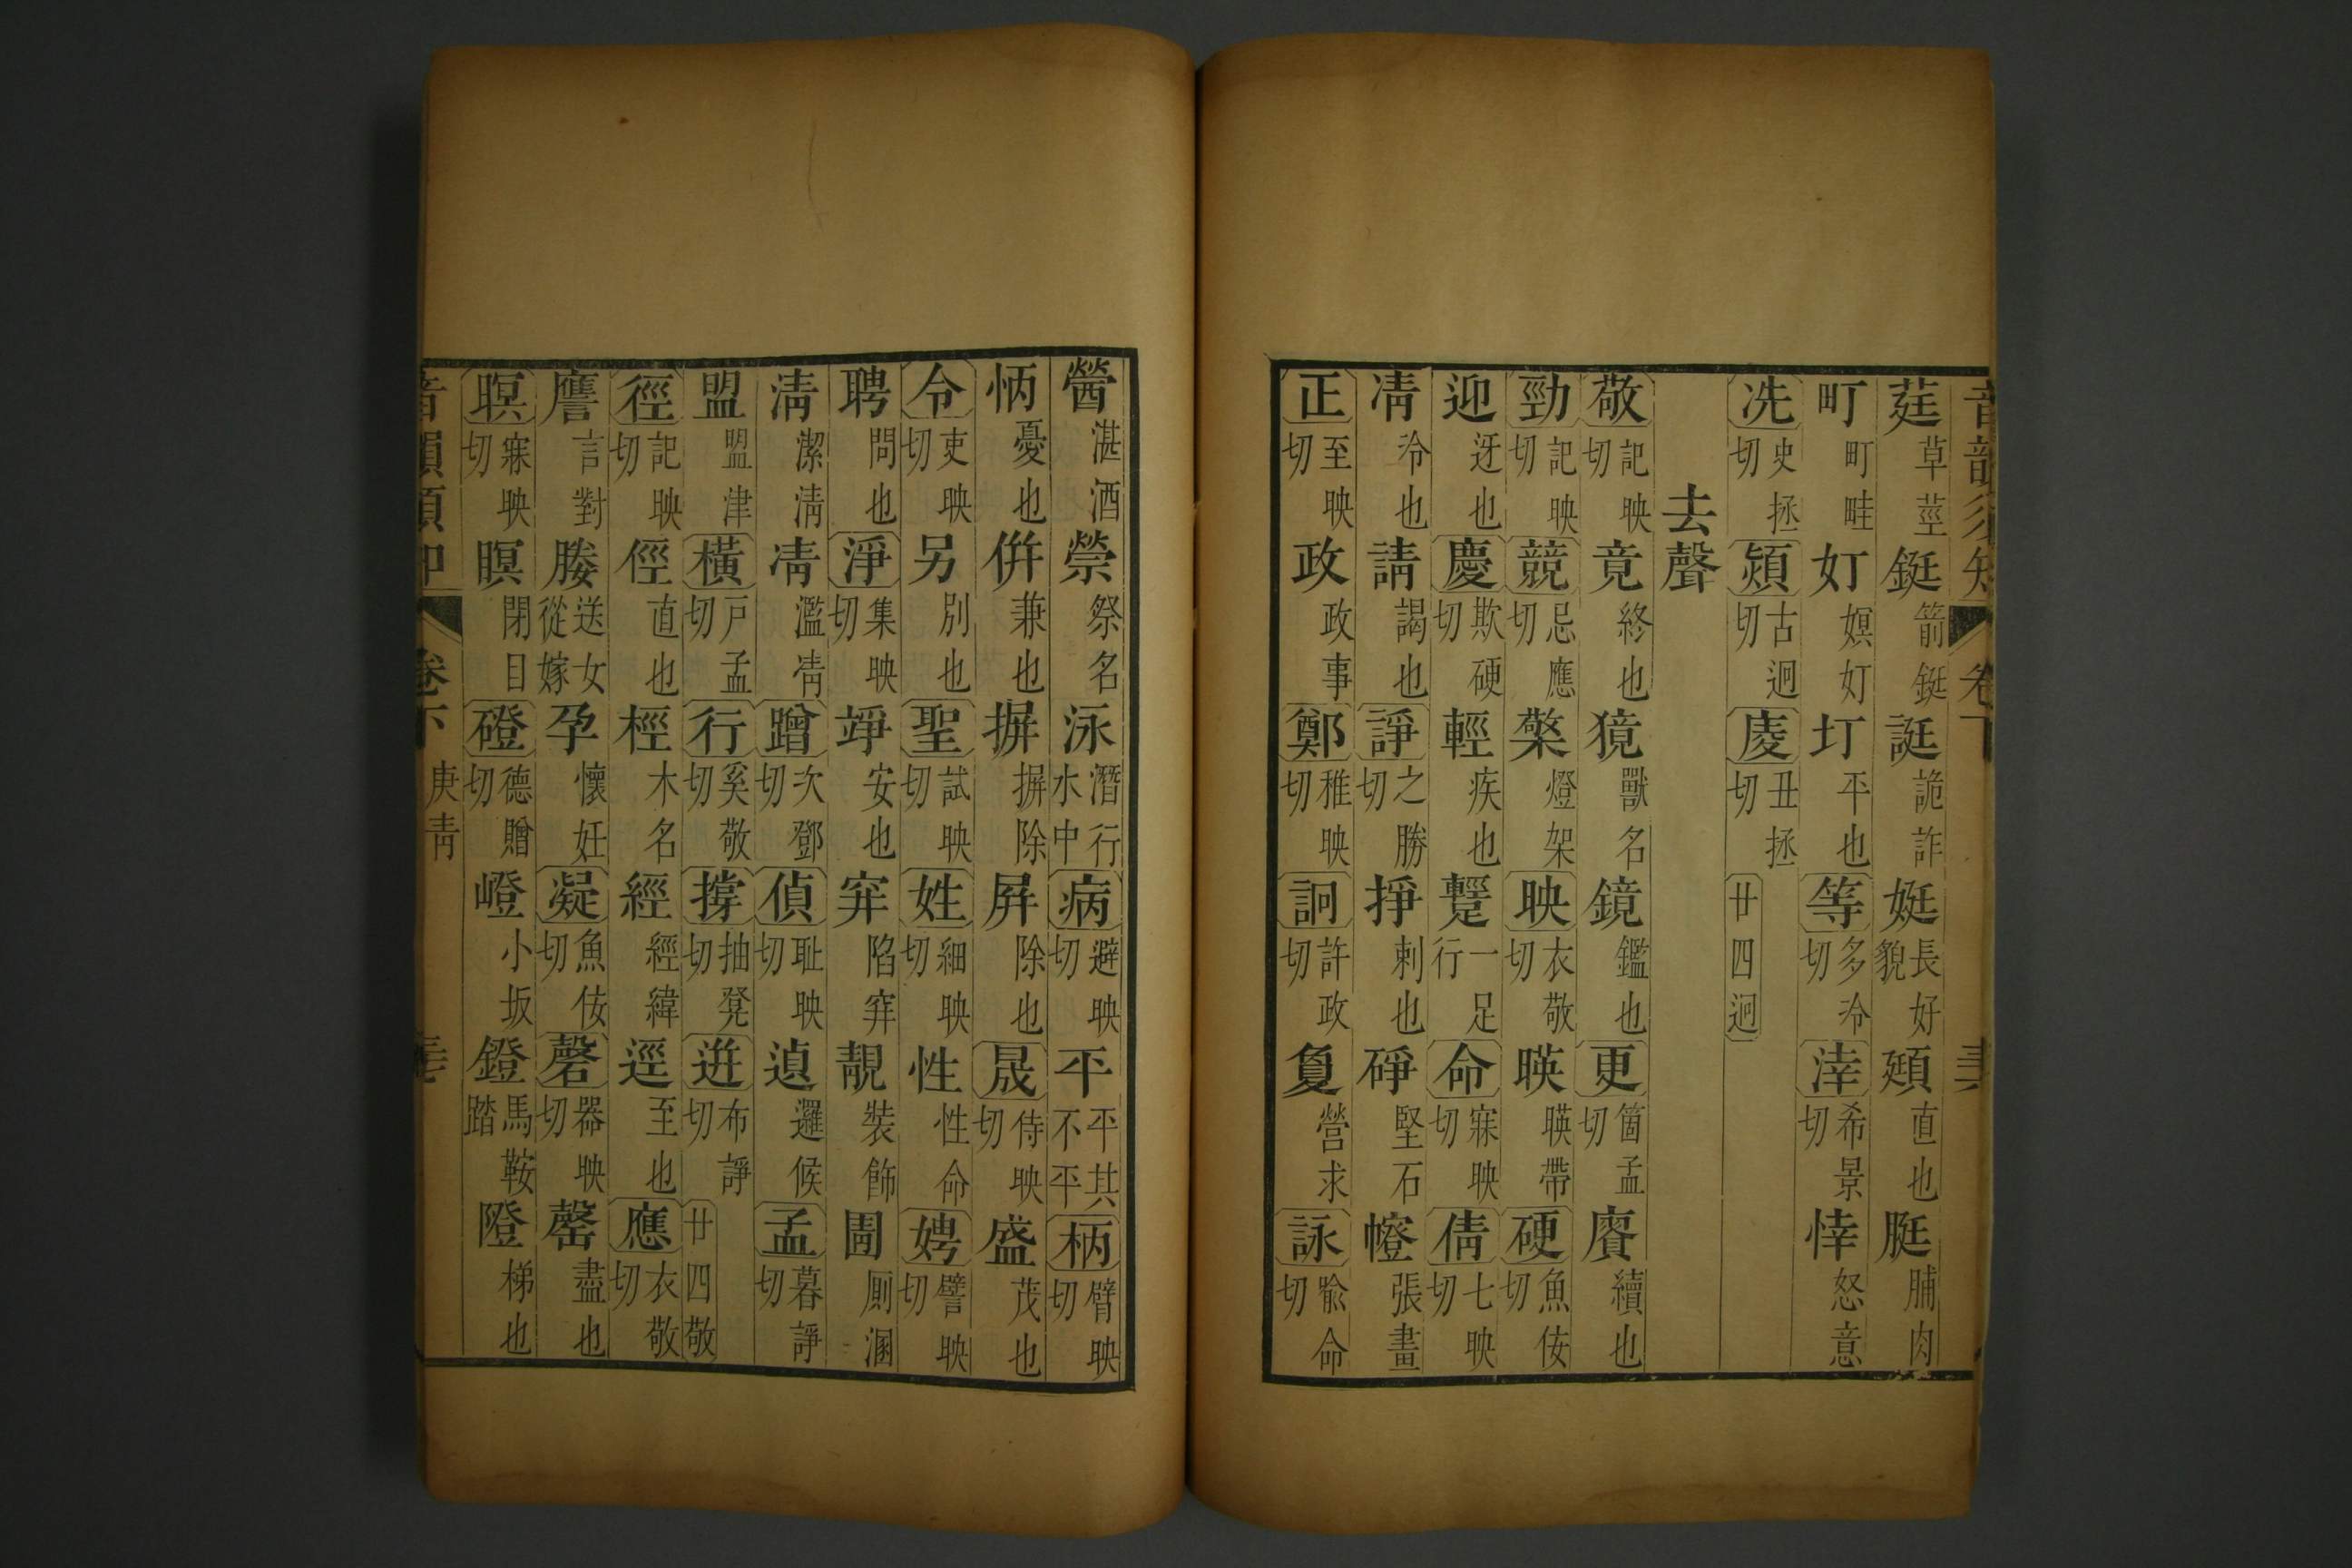 音韻須知 卷下
莛草莖鋌箭鋌誔詭詐娗長好貌頲直也脡脯肉
町町畦奵嫇奵圢平也等多冷切涬希景切悻怒意
冼史拯切熲古迥切庱丑拯切廿四迥
去聲
敬記映切竟終也獍獸名鏡鑑也更箇孟切賡續也
勁記映切競忌應切檠燈架映衣敬切暎暎帶硬魚佞切
迎迓也慶欺硬切輕疾也躄一足行命寐映切倩七映切
凊冷也請謁也諍之勝切掙刺也碀堅石㡧張畫
正至映切政政事鄭稚映切詗許政切敻營求詠喩命切
醟湛酒禜祭名泳潛行水中病避映切平平其不平柄臂映切
怲憂也併兼也摒摒除屏除也晟侍映切盛茂也
令吏映切另別也聖試映切姓細映切性性命娉譬映切
聘問也淨集映切竫安也穽陷穽靚裝飾圊厠溷
清潔清凊濫凊蹭次鄧切偵恥映切遉邏候孟暮諍切
盟盟津橫戶孟切行奚敬切撐抽凳切迸布諍切廿四敬
徑記映切俓直也桱木名經經緯逕至也應衣敬切
譍言對媵送女從嫁孕懷妊凝魚佞切磬器映切罄盡也
暝寐映切瞑閉目磴德贈切嶝小坂鐙馬鞍踏隥梯也
音韻須知 卷下 庚青